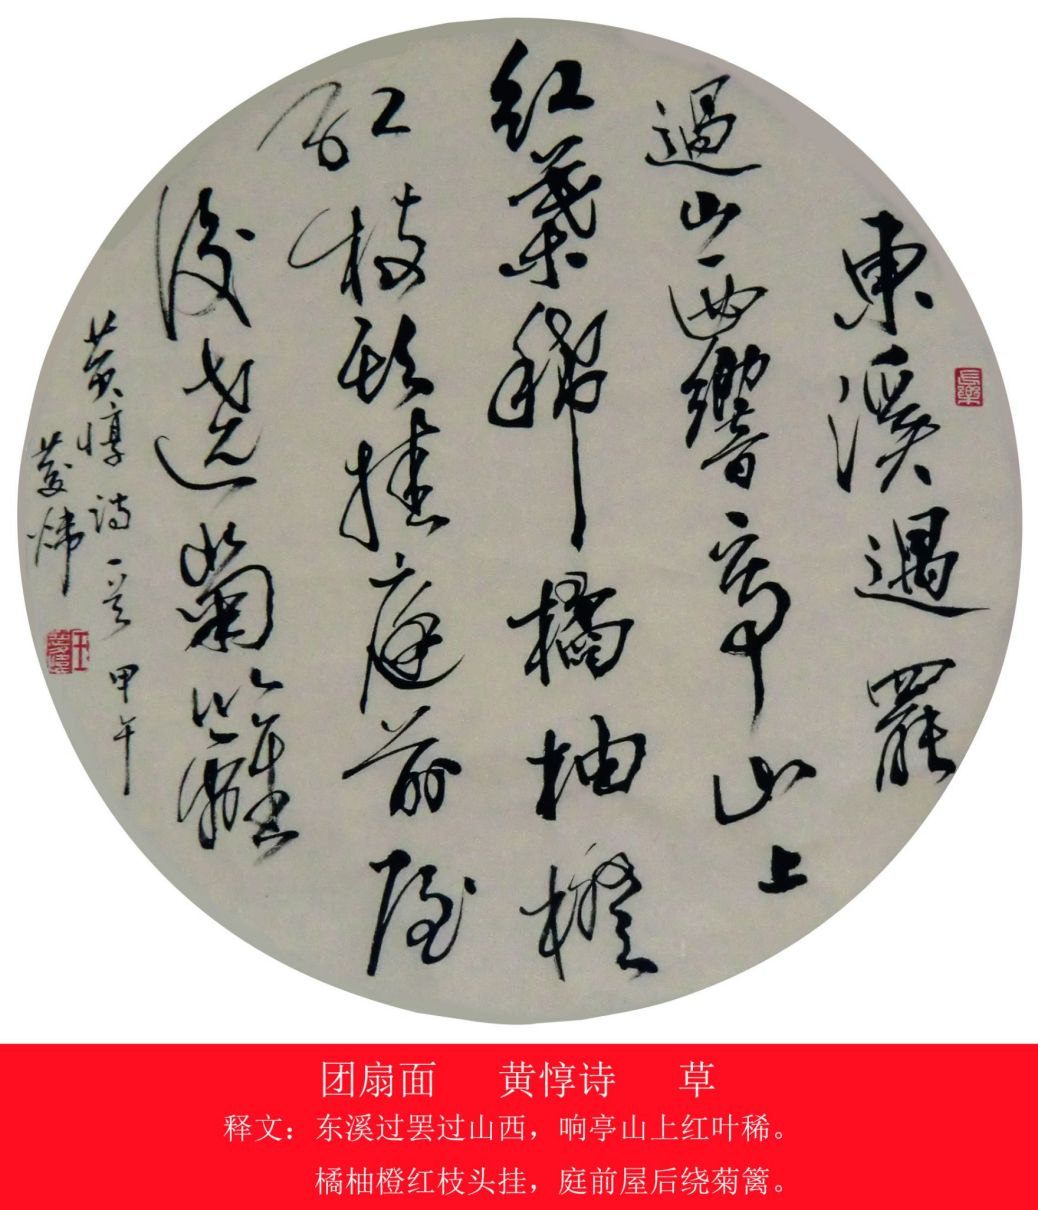 東溪過罷
過山西響亭山上
紅葉稀橘柚橙
紅枝頭掛庭前屋
後遶菊籬
黄惇诗一首 甲午
菱炜
長樂
团扇面 黄惇诗 草
释文：东溪过罢过山西，响亭山上红叶稀。
橘柚橙红枝头挂，庭前屋后绕菊篱。